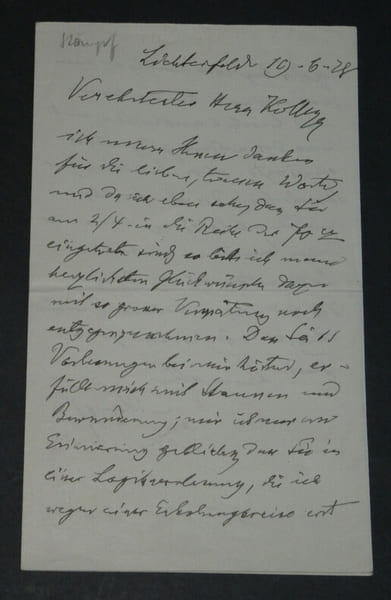 Stumpf
Lichterfelde 10-6-28
Verehrtester Herr Kollege
ich muss Ihnen danken
für die lieben, treuen Worte,
und da ich eben sehe, dass Sie
am 2/4 in die Reihe der 70er
eingetreten sind, so bitte ich meine
herzlichsten Glückwünsche dazu
mit so grosser Verspätung noch
entgegenzunehmen. Dass Sie 11
Vorlesungen bei mir hörten, er-
füllt mich mit Staunen und
Bewunderung; mir ist nur in
Erinnerung geblieben, dass Sie in
einer Logikvorlesung, die ich
wegen einer Erholungsreise erst